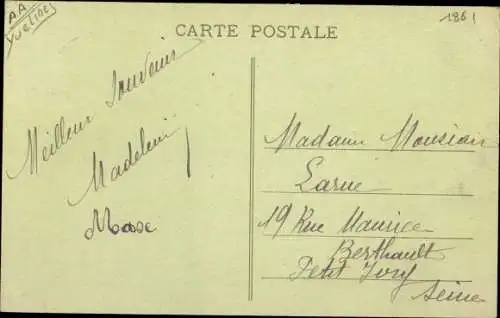 A.A
Yvelines
CARTE POSTALE
1961
Meilleur Souvenir
Madeleine
Mase
Madame Monsieur
Larue
19 Rue Maurice
Berthault
Petit Ivry
Seine